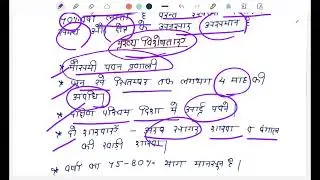 70% वर्षा
समय और क्षेत्र के अनुसार असमान
मुख्य विशेषताएं
* मौसमी पवन प्रणाली
* जून से सितम्बर तक लगभग 4 माह की
अवधि।
* दक्षिण पश्चिम दिशा में आई पवनें
* दो शाखाएँ - अरब सागर शाखा व बंगाल
की खाड़ी शाखा।
* वर्षा का 75-80% भाग मानसून।